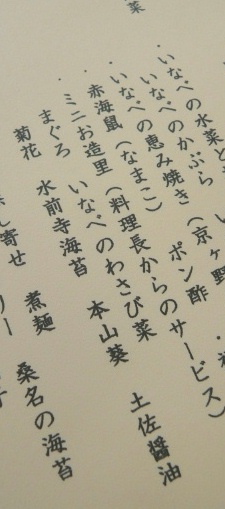 菜
・いなべの水菜と
いなべのかぶら
・いなべの恵み焼き（京ヶ野
赤海鼠（なまこ）ポン酢
・ミニお造里（料理長からのサービス）
まぐろ　いなべのわさび菜　土佐醤油
菊花　水前寺海苔　本山葵
寄せ　煮麺　桑名の海苔